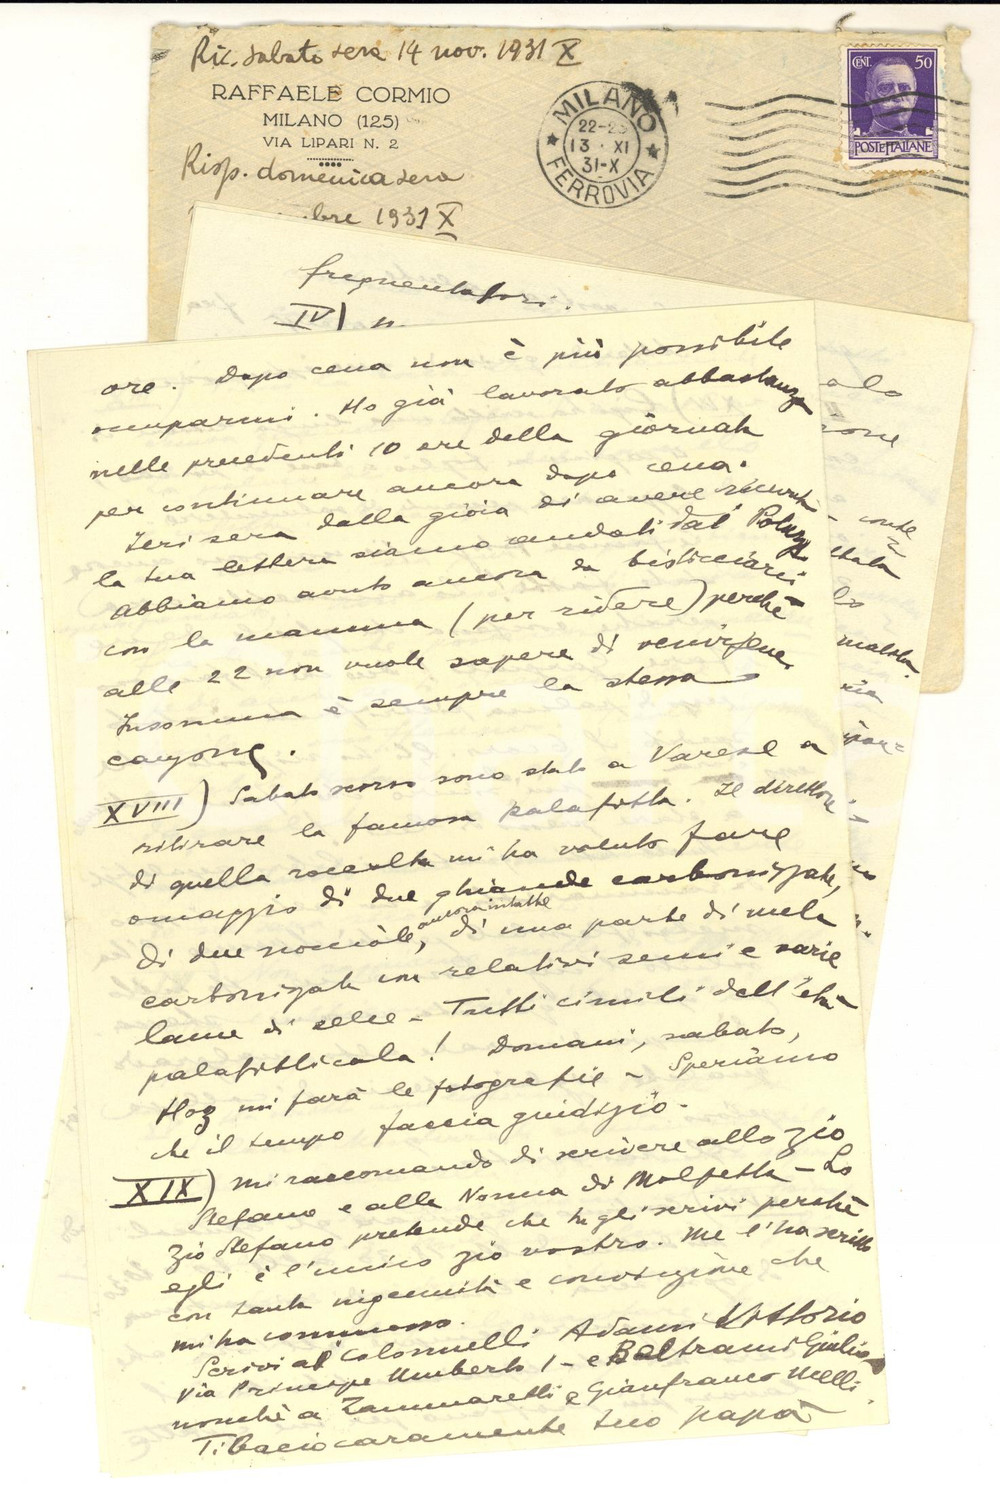 Ric. sabato sera 14 nov. 1931 X
RAFFAELE CORMIO
MILANO (125)
VIA LIPARI N. 2
Risp. domenica sera
mbre 1931 X
MILANO
22-23
13 · XI
31-X
FERROVIA
CENT. 50
POSTE ITALIANE
frequentatori.
IV)
ore. Dopo cena non è più possibile
occuparmi. Ho già lavorato abbastanza
nelle precedenti 10 ore della giornata
per continuare ancora dopo cena.
Ieri sera dalla gioia di avere ricevuta
la tua lettera siamo andati dal
Abbiamo avuto ancora da bisticciarci
con la mamma (per ridere) perchè
alle 22 non vuole sapere di venirsene
Insomma è sempre la stessa
XVIII) Sabato scorso sono stato a Varese a
ritirare la famosa palafitta. Il direttore
di quella raccolta mi ha voluto fare
omaggio di due ghiande carbonizzate,
di due nocciole ancora intatte, di una parte di mela
carbonizzata con relativi semi e varie
lame di selce - Tutti cimili dell'età
palafitticola! Domani, sabato,
mi farà le fotografie - Speriamo
che il tempo faccia giudizio -
XIX) Mi raccomando di scrivere allo zio
Stefano e alla Nonna di Molfetta - Lo
zio Stefano pretende che tu gli scrivi perchè
egli è l'unico zio vostro. Me l'ha scritto
con tanta ingenuità e convinzione che
mi ha commosso.
Scrivi al Colonnelli Adami Vittorio
Via Principe Umberto 1 - e Beltrami Giulio
nonchè a Zammaretti e Gianfranco
Ti bacio caramente tuo papà